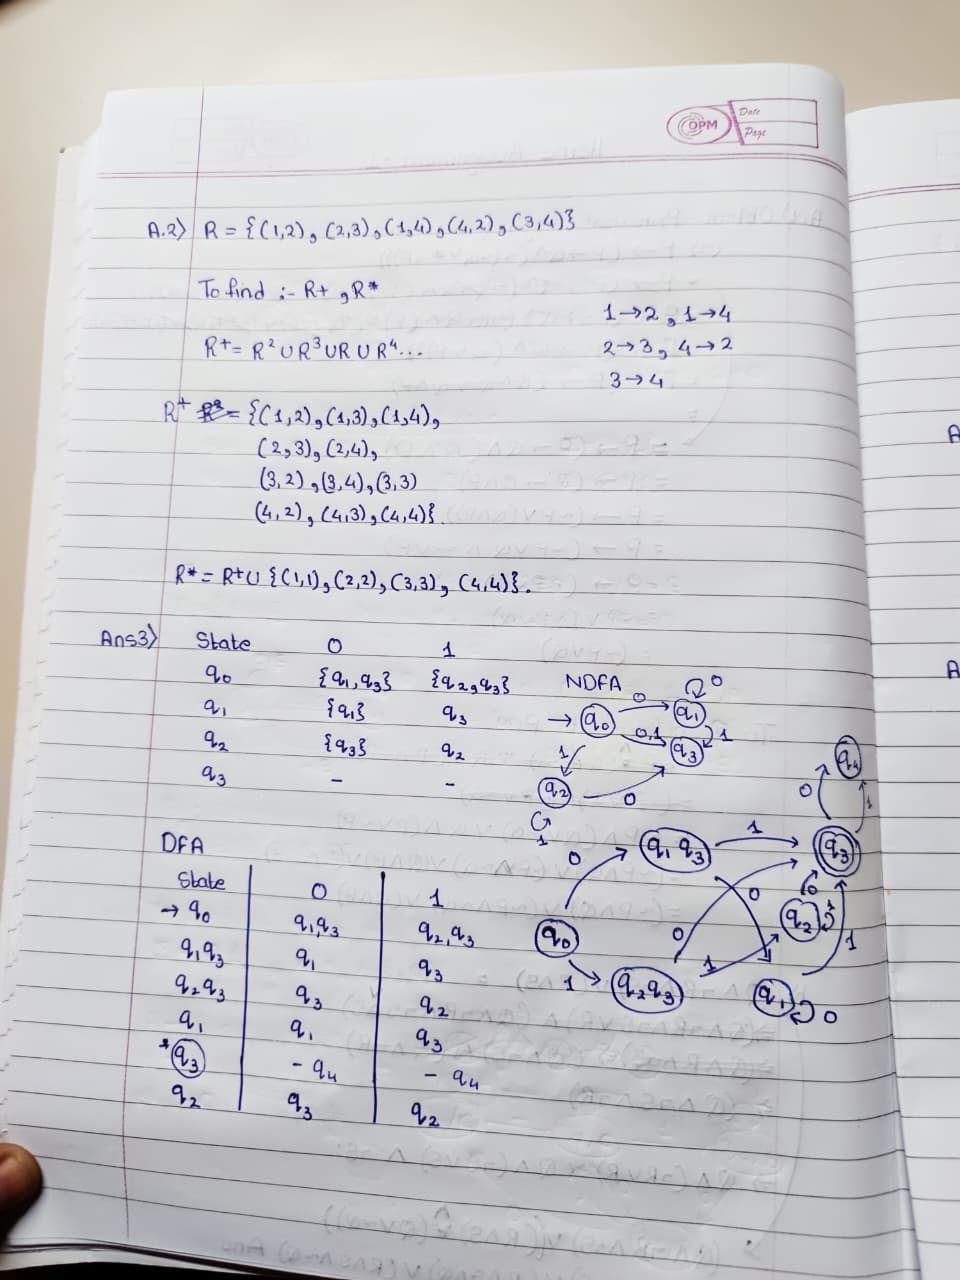 OPM
Date
Page
A.2> R = {(1,2), (2,3), (1,4), (4,2), (3,4)}
To find :- R+, R*
1→2, 1→4
R+ = R² ∪ R³ ∪ R ∪ R⁴...
2→3, 4→2
3→4
R+ = {(1,2), (1,3), (1,4),
(2,3), (2,4),
(3,2), (3,4), (3,3)
(4,2), (4,3), (4,4)}.
R* = R+ ∪ {(1,1), (2,2), (3,3), (4,4)}.
Ans3> State 0 1
q0 {q1,q3} {q2,q3}
q1 {q1} q3
q2 {q3} q2
q3 - -
NDFA
→ q0 0 q1 0
0,1 q3 1
1
q2 0
1
DFA
State 0 1
→ q0 q1,q3 q2,q3
q1q3 q1 q3
q2q3 q3 q2
q1 q1 q3
*q3 - q4 - q4
q2 q3 q2
q4
0 1
0 q1 q3 1 q3
0 0
q0 0 q2 1
1 q2q3 1 q1 0